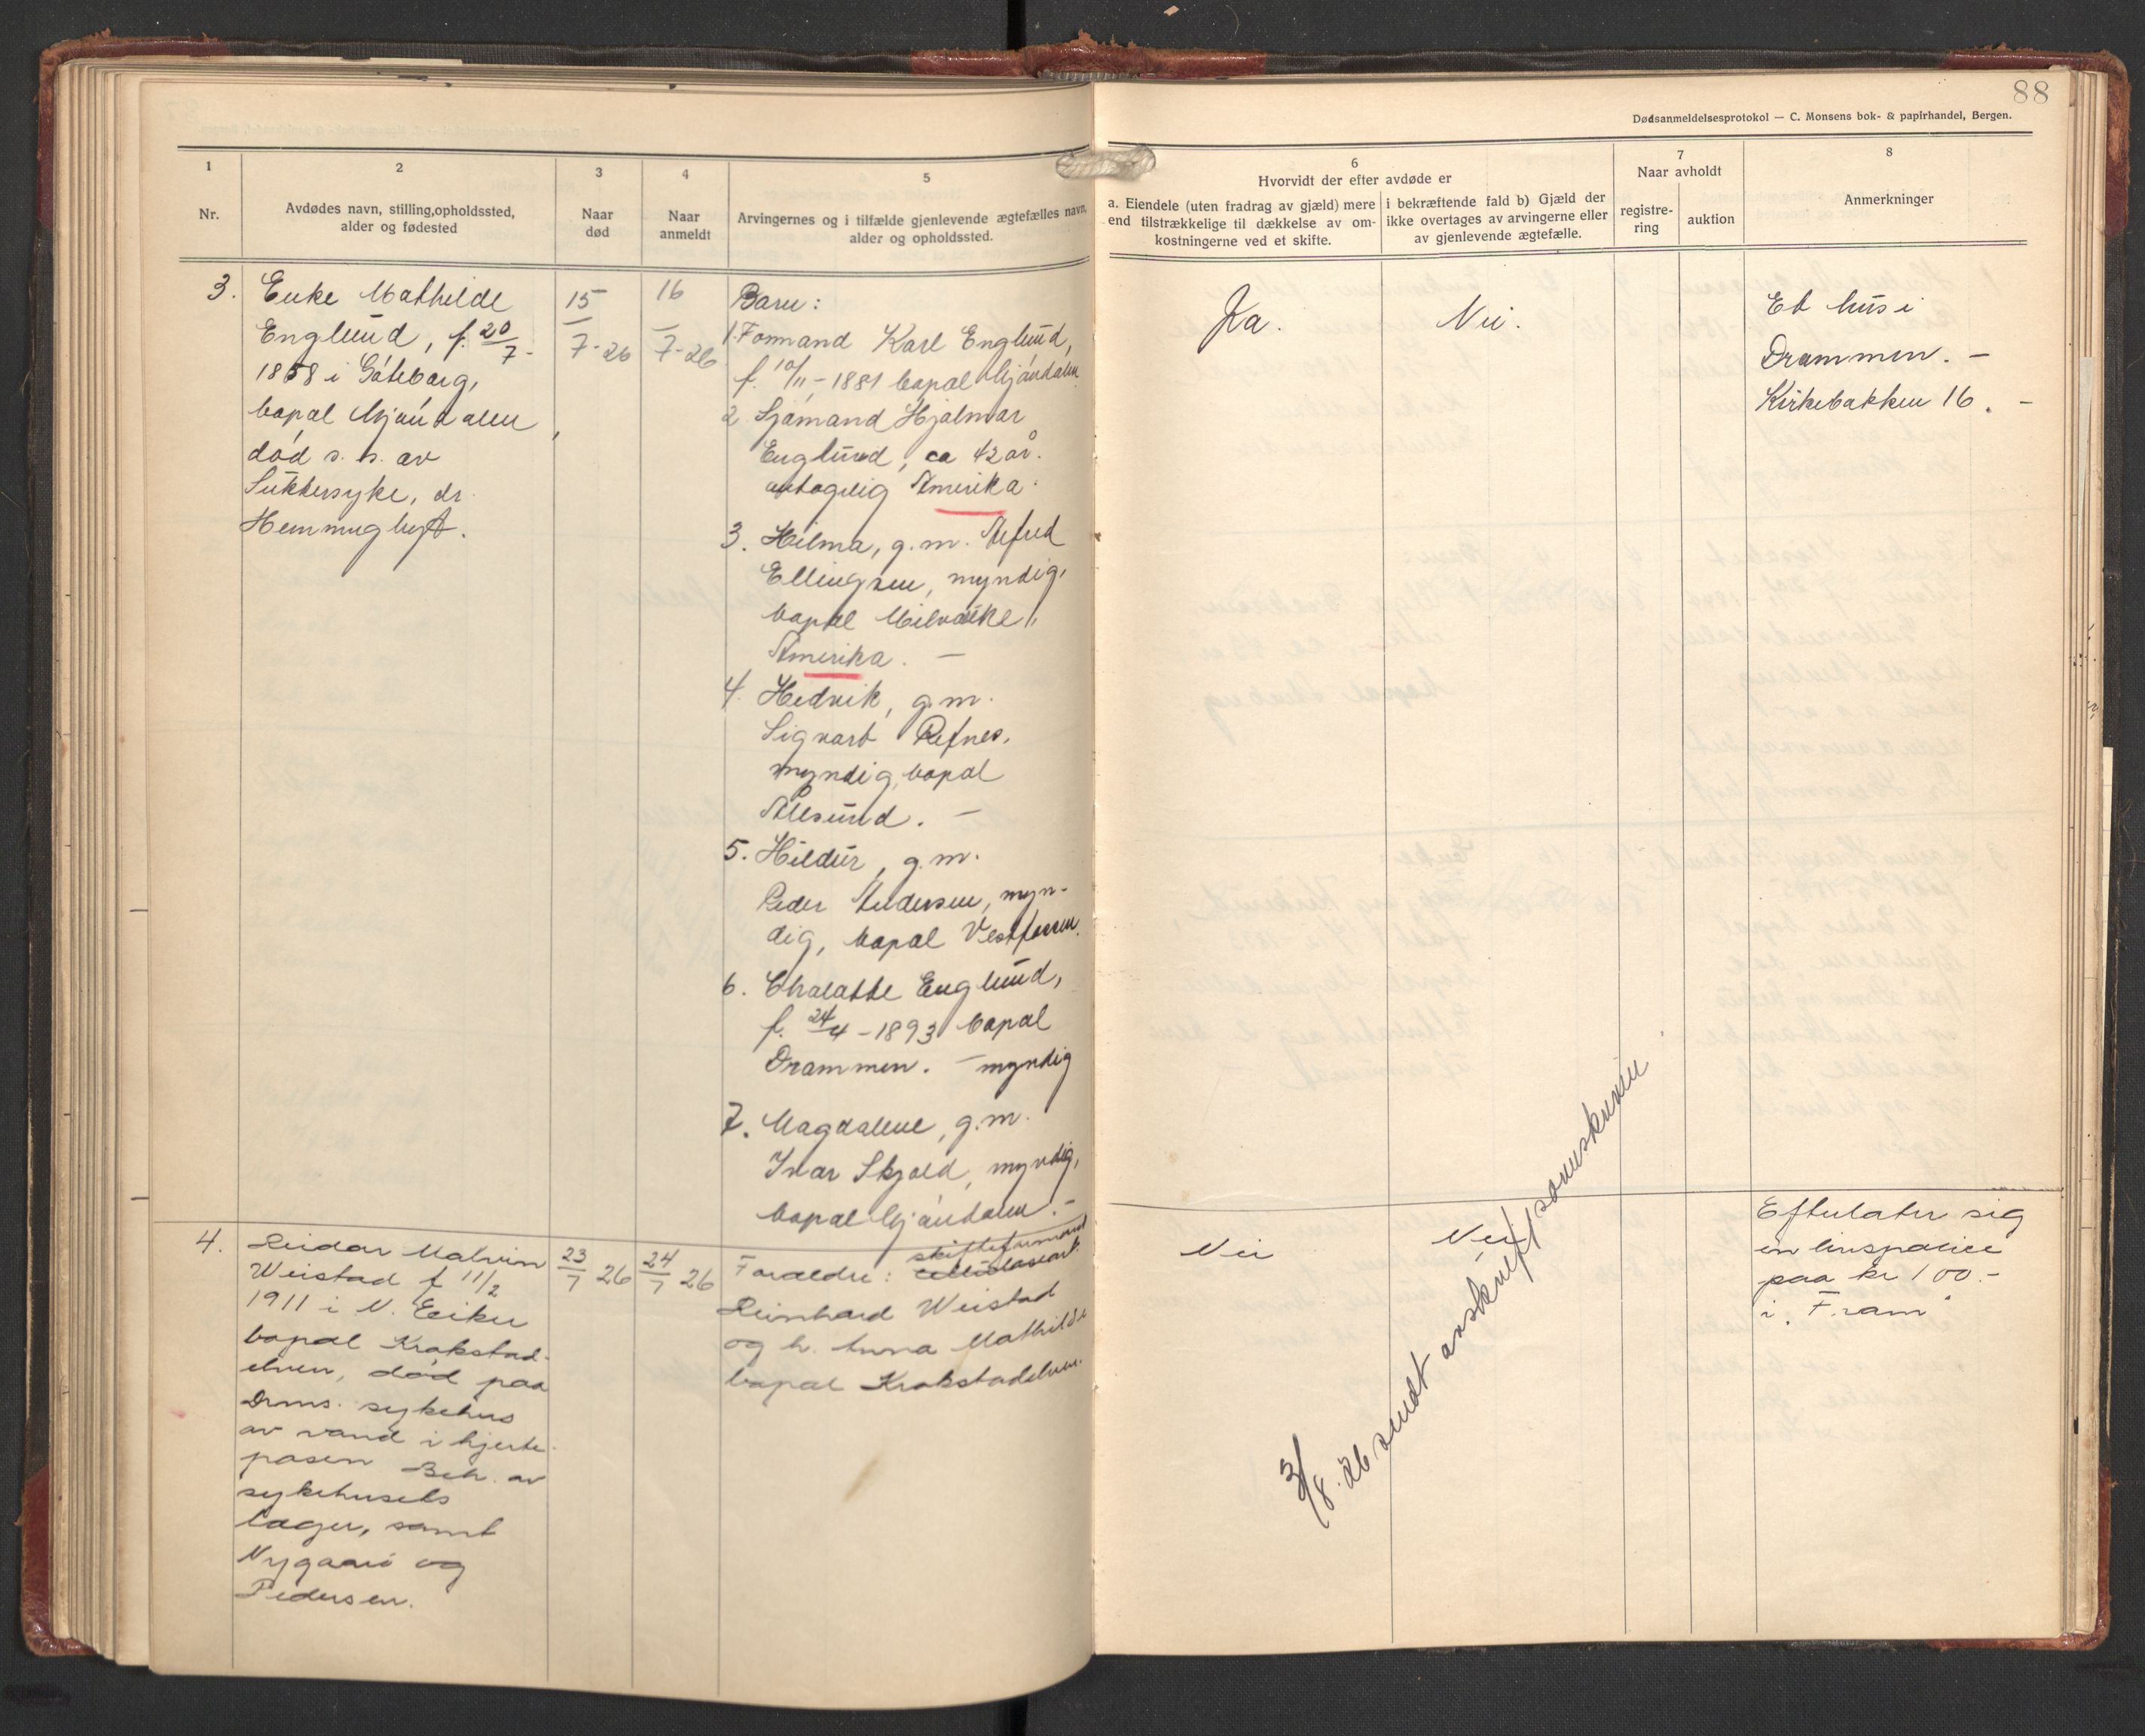 88
Dødsanmeldelsesprotokol — C. Monsens bok- & papirhandel, Bergen.
1
Nr.
2
Avdødes navn, stilling, opholdssted,
alder og fødested
3
Naar
død
4
Naar
anmeldt
5
Arvingernes og i tilfælde gjenlevende ægtefælles navn,
alder og opholdssted.
6
Hvorvidt der efter avdøde er
a. Eiendele (uten fradrag av gjæld) mere
end tilstrækkelige til dækkelse av om-
kostningerne ved et skifte.
i bekræftende fald b) Gjæld der
ikke overtages av arvingerne eller
av gjenlevende ægtefælle.
7
Naar avholdt
registre-
ring
auktion
8
Anmerkninger
3.
Enke Mathilde
Englund, f. 20/7-
1858 i Gøteborg,
bopal Mjøndalen,
død s. s. av
Sukkersyke, dr
Hemmingbyt.
15/7-26
16/7-26
Barn:
1. Formand Karl Englund,
f. 10/11-1881 bopal Mjøndalen
2. Sjømand Hjalmar
Englund, ca 42 år.
antagelig Amerika.
3. Hilma, g.m. Alfred
Ellingsen, myndig,
bopal Milvauke,
Amerika. —
4. Hedvik, g.m.
Sigvart Refnes.
myndig, bopal
Ålesund. —
5. Hildur, g.m.
Peder Andersen, myn-
dig, bopal Vestfossen.
6. Chalatte Englund,
f. 24/4-1893 bopal
Drammen. — myndig
7. Magdalene, g.m.
Ivar Skjold, myndig,
bopal Mjøndalen. —
Ja.
Nei.
Et hus i
Drammen. —
Kirkebakken 16. —
4.
Reidar Malvin
Weistad f 11/2
1911 i N. Eiker
bopal Krokstad-
elven, død paa
Drms. sykehus
av vand i hjerte-
posen Beh. av
sykehusets
læger, samt
Nygaard og
Pedersen.
23/7 26
24/7 26
skifteformand
Forældre: cellulosearb.
Reinhard Weistad
og h. Anna Mathilde
bopal Krokstadelven.
Nei
Nei
Efterlater sig
en livspolice
paa kr 100.-
i "Fram"
3/8. 26 sendt avskrift sorenskriveren